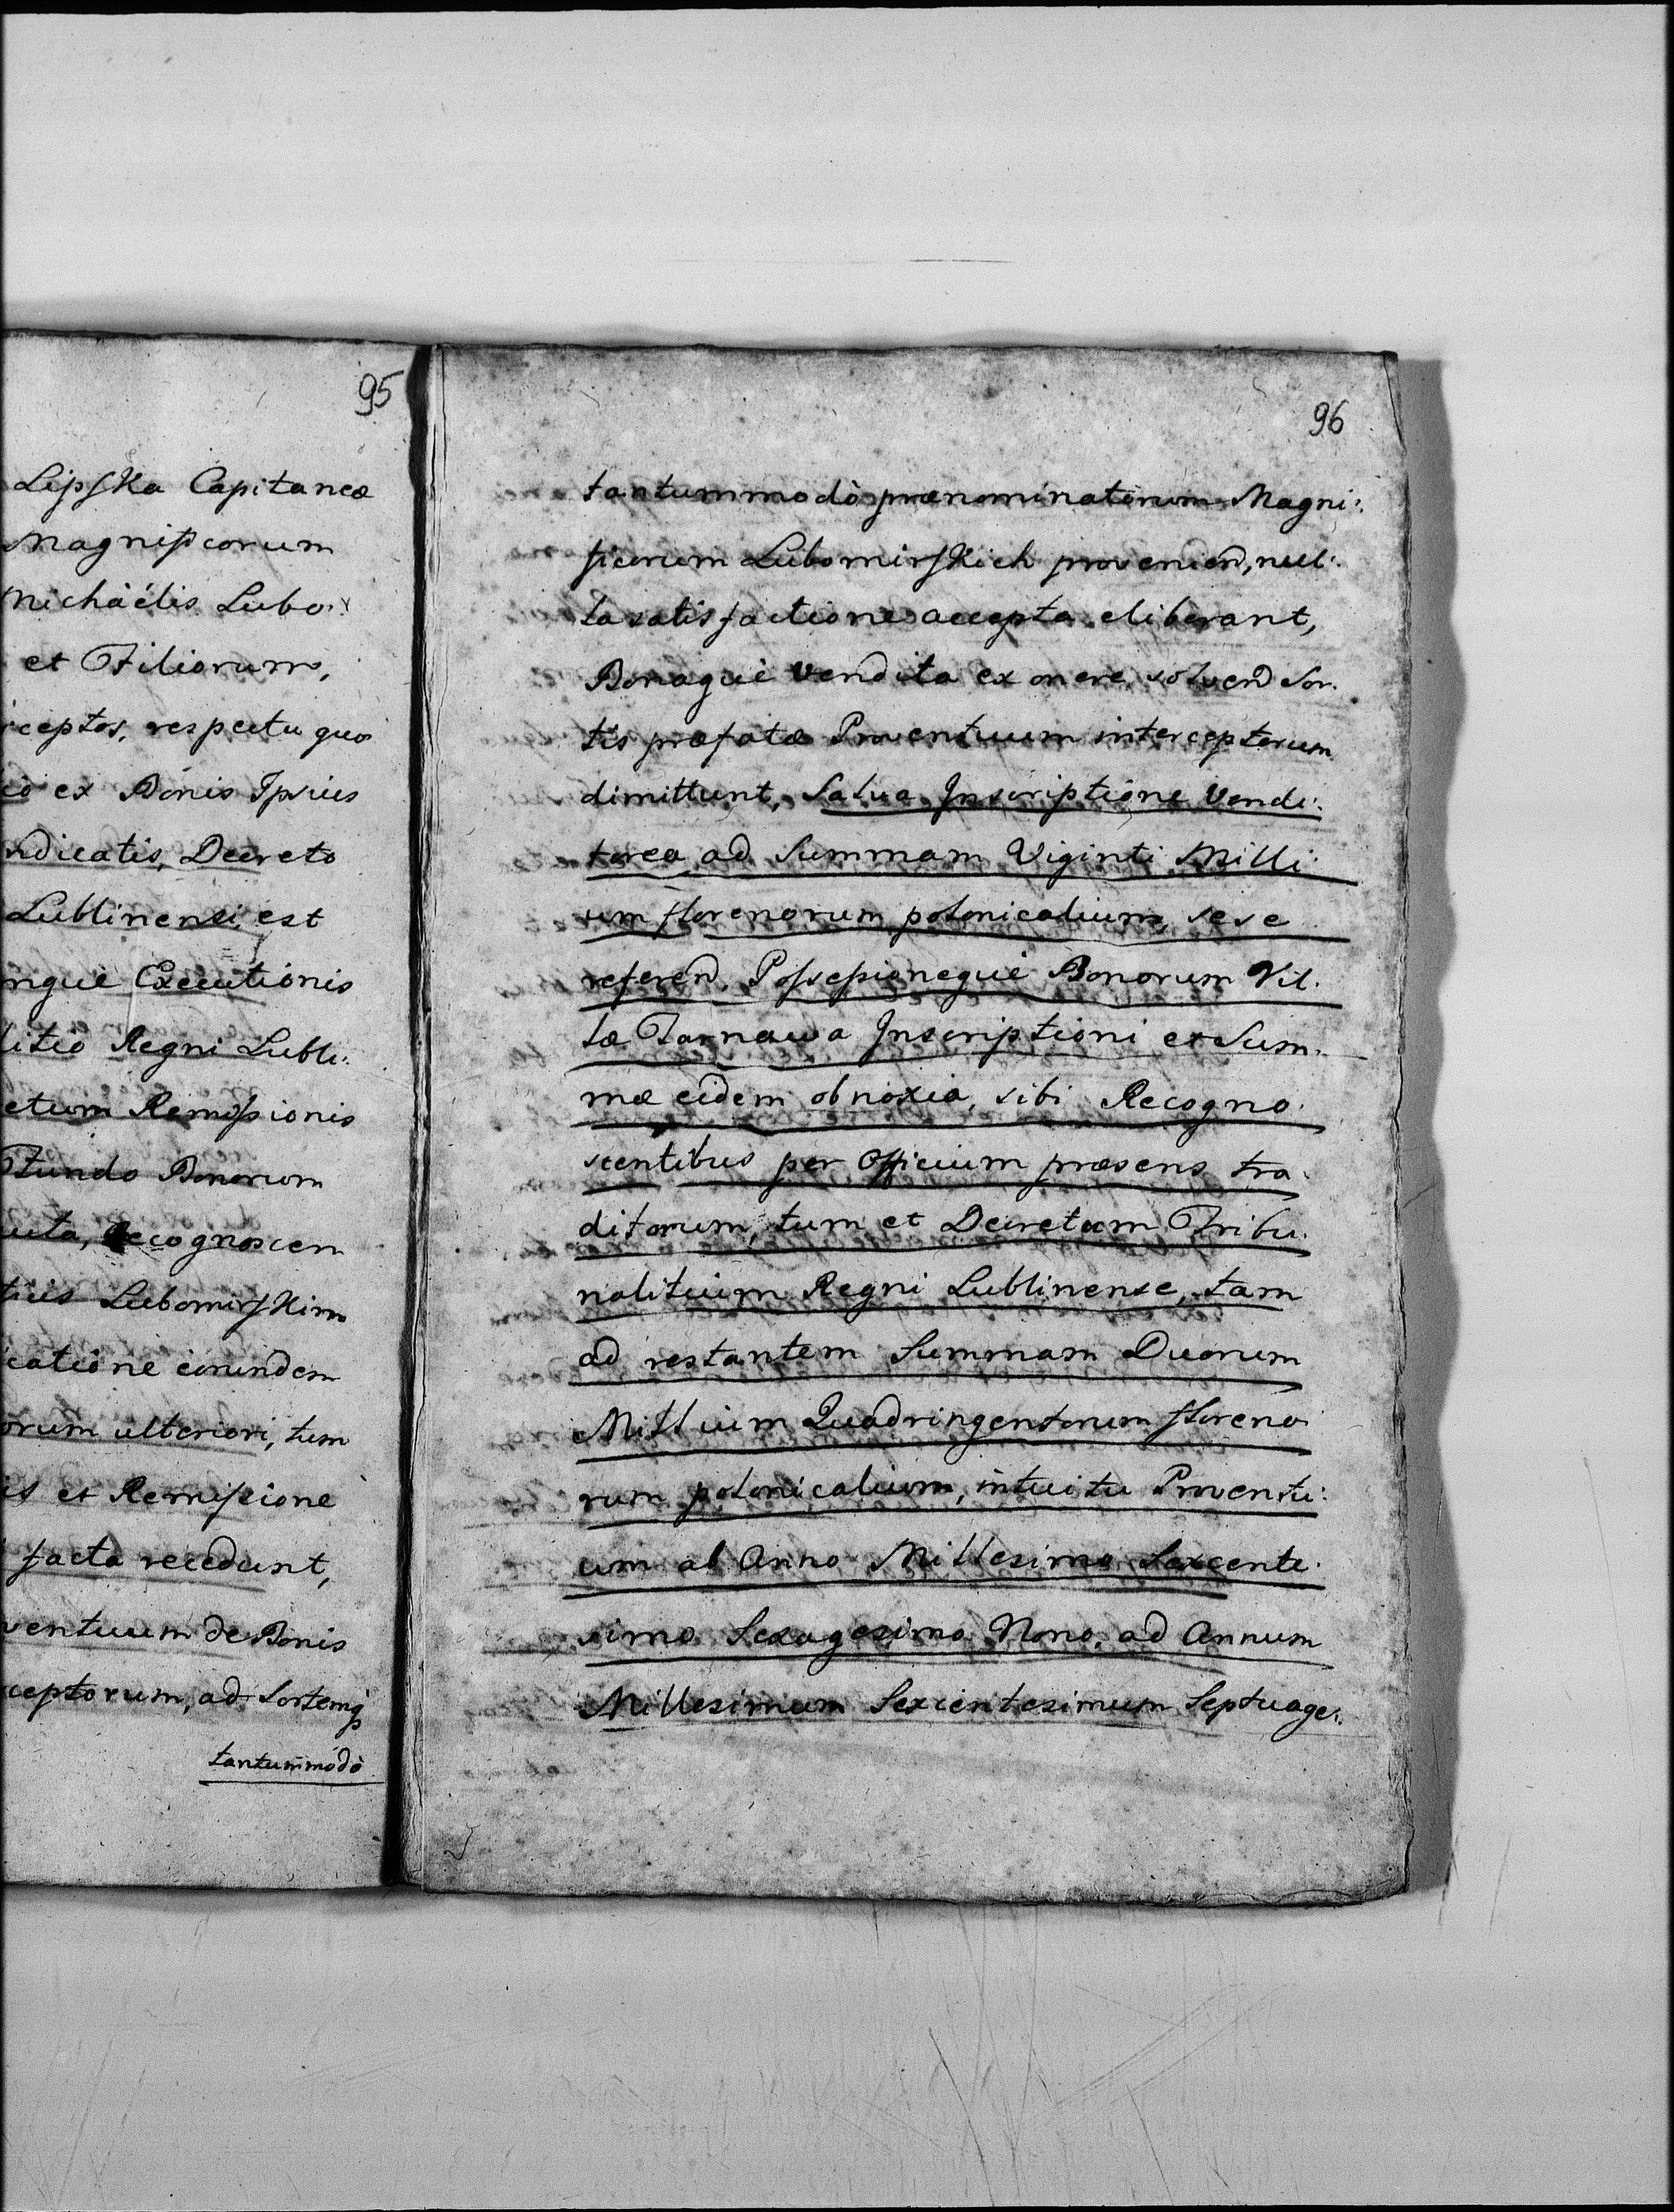 95
Lipſka Capitaneæ
Magnificorum
Michaëlis Lubo:
et Filiorum,
rceptos, respectu quo
ex Bonis Ipsius
ndicatis, Decreto
Lublinensi, est
nque Executionis
litio Regni Lubli:
etum Remiſsionis
Fundo Bonorum
uta, Recognoscen
tiis Lubomirſkim
catione eorundem
orum ulteriori, tum
is et Remiſsione
facta recedunt,
ventuum de Bonis
ceptorum, ad Sortemq3
tantum̄modò
96
tantummodò prænominatorum Magni:
ficorum Lubomirſkich proveniend, nul:
la satisfactione accepta eliberant,
Bonaque vendita ex onere solvend Sor:
tis præfatæ Proventuum interceptorum
dimittunt, Salva Inscriptione Vendi:
torea ad Summam Viginti Milli:
um florenorum polonicalium, sese
referend. Poſseſsioneque Bonorum Vil:
læ Tarnawa Inscriptioni et Sum:
mæ eidem obnoxia, sibi Recogno:
scentibus per Officium præsens tra:
ditorum, tum et Decretum Tribu:
nalitium Regni Lublinense, tam
ad restantem Summam Duorum
Millium Quadringentorum floreno
rum polonicalium, intuitu Proventu:
um ab Anno Millesimo Sexcente:
simo Sexagesimo Nono, ad Annum
Millesimum Sexcentesimum Septuage: